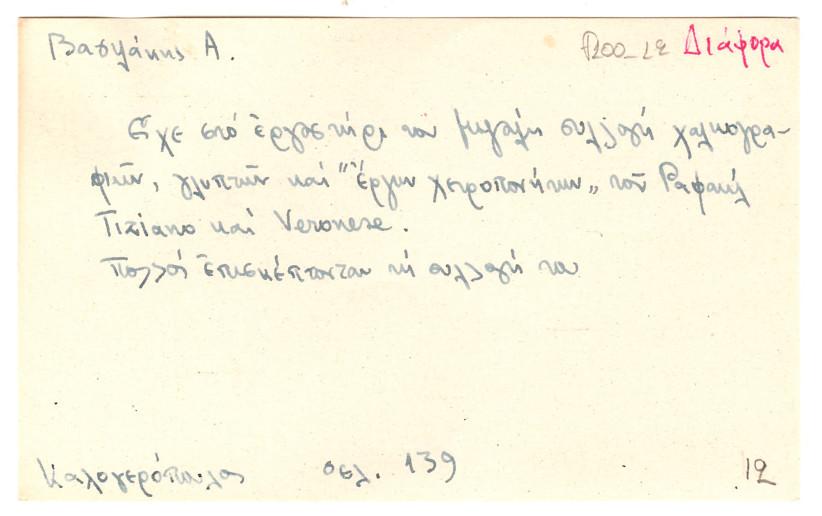 Βασιλάκης Α. P200_L2 Διάφορα
Εἶχε στό ἐργαστήρι του μεγάλη συλλογή χαλκογρα-
φιῶν, γλυπτῶν καί "ἔργων χειροπονήτων„ τοῦ Ραφαήλ
Tiziano καί Veronese.
Πολλοί ἐπισκέπτονταν τή συλλογή του
Καλογερόπουλος σελ. 139 12